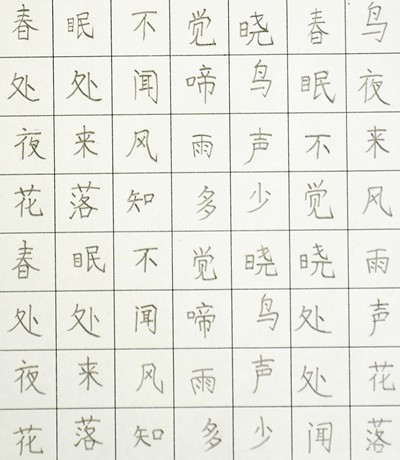 春眠不觉晓春鸟
处处闻啼鸟眠夜
夜来风雨声不来
花落知多少觉风
春眠不觉晓晓雨
处处闻啼鸟处声
夜来风雨声处花
花落知多少闻落